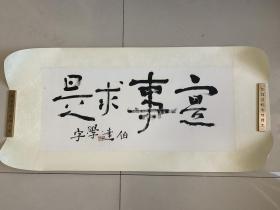 實事求是
伯達學字